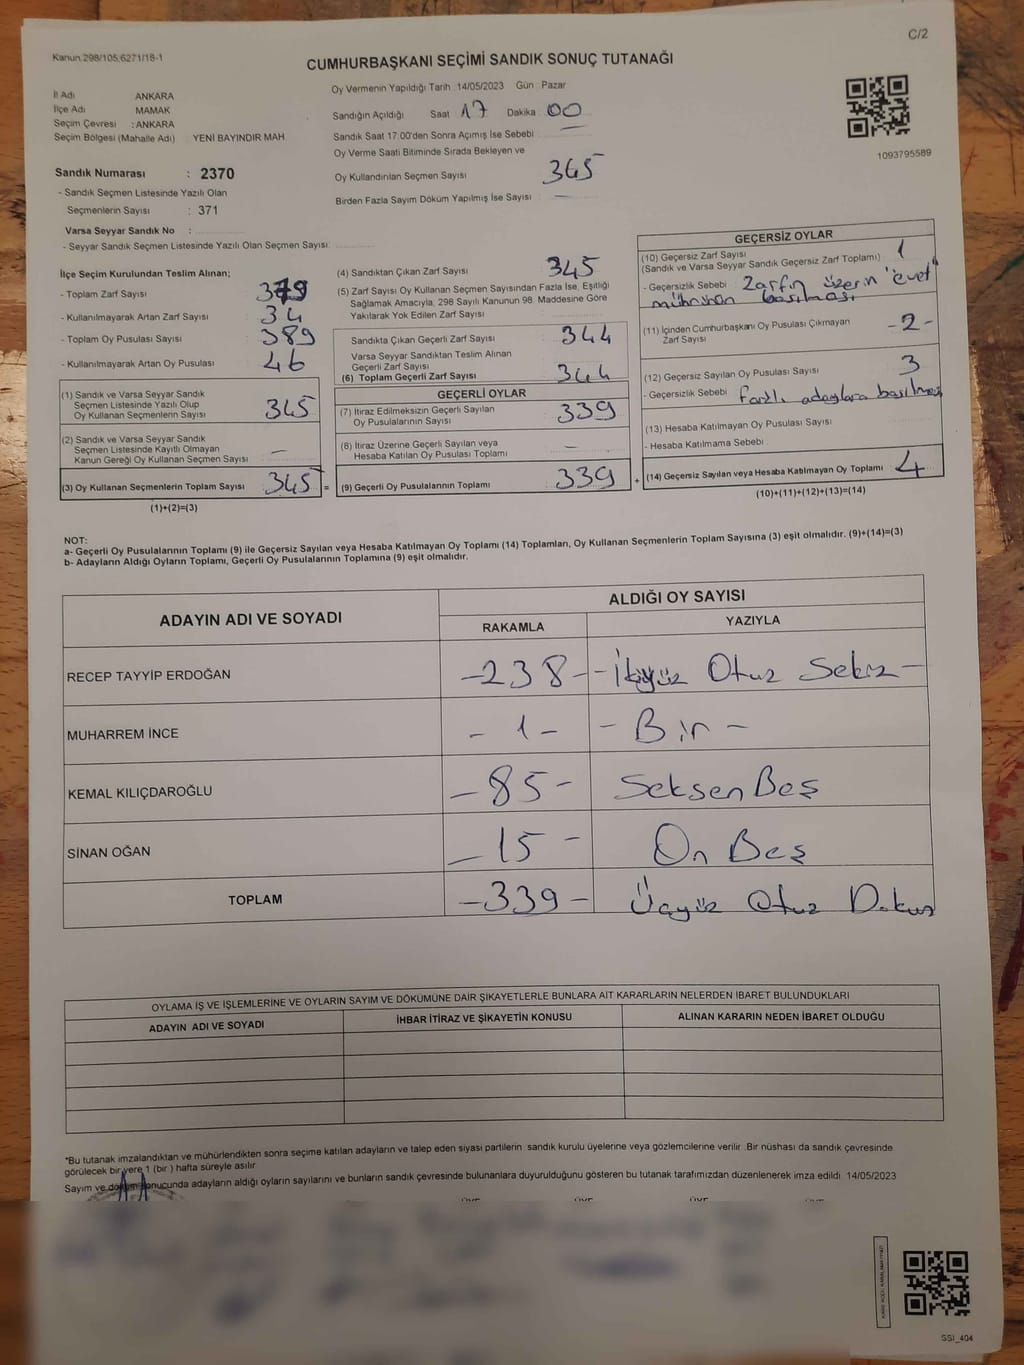 Kanun.298/105;6271/18-1
C/2
CUMHURBAŞKANI SEÇİMİ SANDIK SONUÇ TUTANAĞI
İl Adı ANKARA
İlçe Adı MAMAK
Seçim Çevresi : ANKARA
Seçim Bölgesi (Mahalle Adı) YENİ BAYINDIR MAH
Oy Vermenin Yapıldığı Tarih 14/05/2023 Gün : Pazar
Sandığın Açıldığı Saat 17 Dakika 00
Sandık Saat 17:00'den Sonra Açımış İse Sebebi
Oy Verme Saati Bitiminde Sırada Bekleyen ve
Oy Kullandırılan Seçmen Sayısı 345
Birden Fazla Sayım Döküm Yapılmış İse Sayısı : —
1093795589
Sandık Numarası : 2370
- Sandık Seçmen Listesinde Yazılı Olan
Seçmenlerin Sayısı : 371
Varsa Seyyar Sandık No :
- Seyyar Sandık Seçmen Listesinde Yazılı Olan Seçmen Sayısı:
İlçe Seçim Kurulundan Teslim Alınan;
- Toplam Zarf Sayısı
- Kullanılmayarak Artan Zarf Sayısı 34
- Toplam Oy Pusulası Sayısı 389
- Kullanılmayarak Artan Oy Pusulası 46
(1) Sandık ve Varsa Seyyar Sandık
Seçmen Listesinde Yazılı Olup
Oy Kullanan Seçmenlerin Sayısı 345
(2) Sandık ve Varsa Seyyar Sandık
Seçmen Listesinde Kayıtlı Olmayan
Kanun Gereği Oy Kullanan Seçmen Sayısı —
(3) Oy Kullanan Seçmenlerin Toplam Sayısı 345 =
(1)+(2)=(3)
(4) Sandıktan Çıkan Zarf Sayısı 345
(5) Zarf Sayısı Oy Kullanan Seçmen Sayısından Fazla İse, Eşitliği
Sağlamak Amacıyla, 298 Sayılı Kanunun 98. Maddesine Göre
Yakılarak Yok Edilen Zarf Sayısı :
Sandıkta Çıkan Geçerli Zarf Sayısı 344
Varsa Seyyar Sandıktan Teslim Alınan
Geçerli Zarf Sayısı :
(6) Toplam Geçerli Zarf Sayısı 344
GEÇERLİ OYLAR
(7) İtiraz Edilmeksizin Geçerli Sayılan
Oy Pusulalarının Sayısı 339
(8) İtiraz Üzerine Geçerli Sayılan veya
Hesaba Katılan Oy Pusulası Toplamı —
(9) Geçerli Oy Pusulalarının Toplamı 339 +
GEÇERSİZ OYLAR
(10) Geçersiz Zarf Sayısı 1
(Sandık ve Varsa Seyyar Sandık Geçersiz Zarf Toplamı)
- Geçersizlik Sebebi Zarfın üzerin "evet"
mührünün basılması
(11) İçinden Cumhurbaşkanı Oy Pusulası Çıkmayan
Zarf Sayısı -2-
(12) Geçersiz Sayılan Oy Pusulası Sayısı 3
- Geçersizlik Sebebi farklı adaylara basılması
(13) Hesaba Katılmayan Oy Pusulası Sayısı :
- Hesaba Katılmama Sebebi :
(14) Geçersiz Sayılan veya Hesaba Katılmayan Oy Toplamı 4
(10)+(11)+(12)+(13)=(14)
NOT:
a- Geçerli Oy Pusulalarının Toplamı (9) ile Geçersiz Sayılan veya Hesaba Katılmayan Oy Toplamı (14) Toplamları, Oy Kullanan Seçmenlerin Toplam Sayısına (3) eşit olmalıdır. (9)+(14)=(3)
b- Adayların Aldığı Oyların Toplamı, Geçerli Oy Pusulalarının Toplamına (9) eşit olmalıdır.
ADAYIN ADI VE SOYADI ALDIĞI OY SAYISI
RAKAMLA YAZIYLA
RECEP TAYYİP ERDOĞAN -238- -İkiyüz Otuz Sekiz-
MUHARREM İNCE -1- -Bir-
KEMAL KILIÇDAROĞLU -85- Seksen Beş
SİNAN OĞAN -15- On Beş
TOPLAM -339- Üçyüz Otuz Dokuz
OYLAMA İŞ VE İŞLEMLERİNE VE OYLARIN SAYIM VE DÖKÜMÜNE DAİR ŞİKAYETLERLE BUNLARA AİT KARARLARIN NELERDEN İBARET BULUNDUKLARI
ADAYIN ADI VE SOYADI İHBAR İTİRAZ VE ŞİKAYETİN KONUSU ALINAN KARARIN NEDEN İBARET OLDUĞU
*Bu tutanak imzalandıktan ve mühürlendikten sonra seçime katılan adayların ve talep eden siyasi partilerin sandık kurulu üyelerine veya gözlemcilerine verilir .Bir nüshası da sandık çevresinde
görülecek bir yere 1 (bir ) hafta süreyle asılır
Sayım ve döküm sonucunda adayların aldığı oyların sayılarını ve bunların sandık çevresinde bulunanlara duyurulduğunu gösteren bu tutanak tarafımızdan düzenlenerek imza edildi 14/05/2023
SSI_404